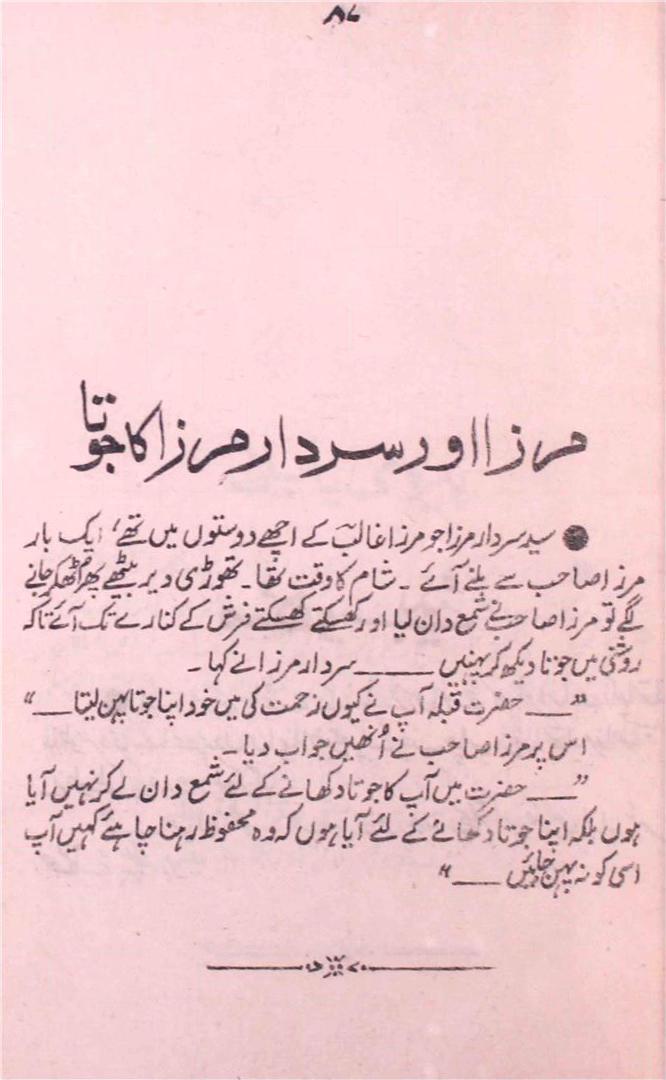 ۸۷
مرزا اور سردار مرزا کا جوتا
● سید سردار مرزا جو مرزا غالبؔ کے اچھے دوستوں میں تھے، ایک بار
مرزا صاحب سے ملنے آئے ۔ شام کا وقت تھا۔ تھوڑی دیر بیٹھے پھر اٹھکر جانے
لگے تو مرزا صاحب نے شمع دان لیا اور کھسکتے کھسکتے فرش کے کنارے تک آئے تاکہ
روشنی میں جوتا دیکھ کر پہنیں ـــــــ سردار مرزا نے کہا ۔
”ــــ حضرت قبلہ آپ نے کیوں زحمت کی میں خود اپنا جوتا پہن لیتا ــــ“
اس پر مرزا صاحب نے اُنھیں جواب دیا ۔
”ــــ حضرت میں آپ کا جوتا دکھانے کے لئے شمع دان لے کر نہیں آیا
ہوں بلکہ اپنا جوتا دکھائے کے لئے آیا ہوں کہ وہ محفوظ رہنا چاہئے کہیں آپ
اسی کو نہ پہن جائیں ــــ“